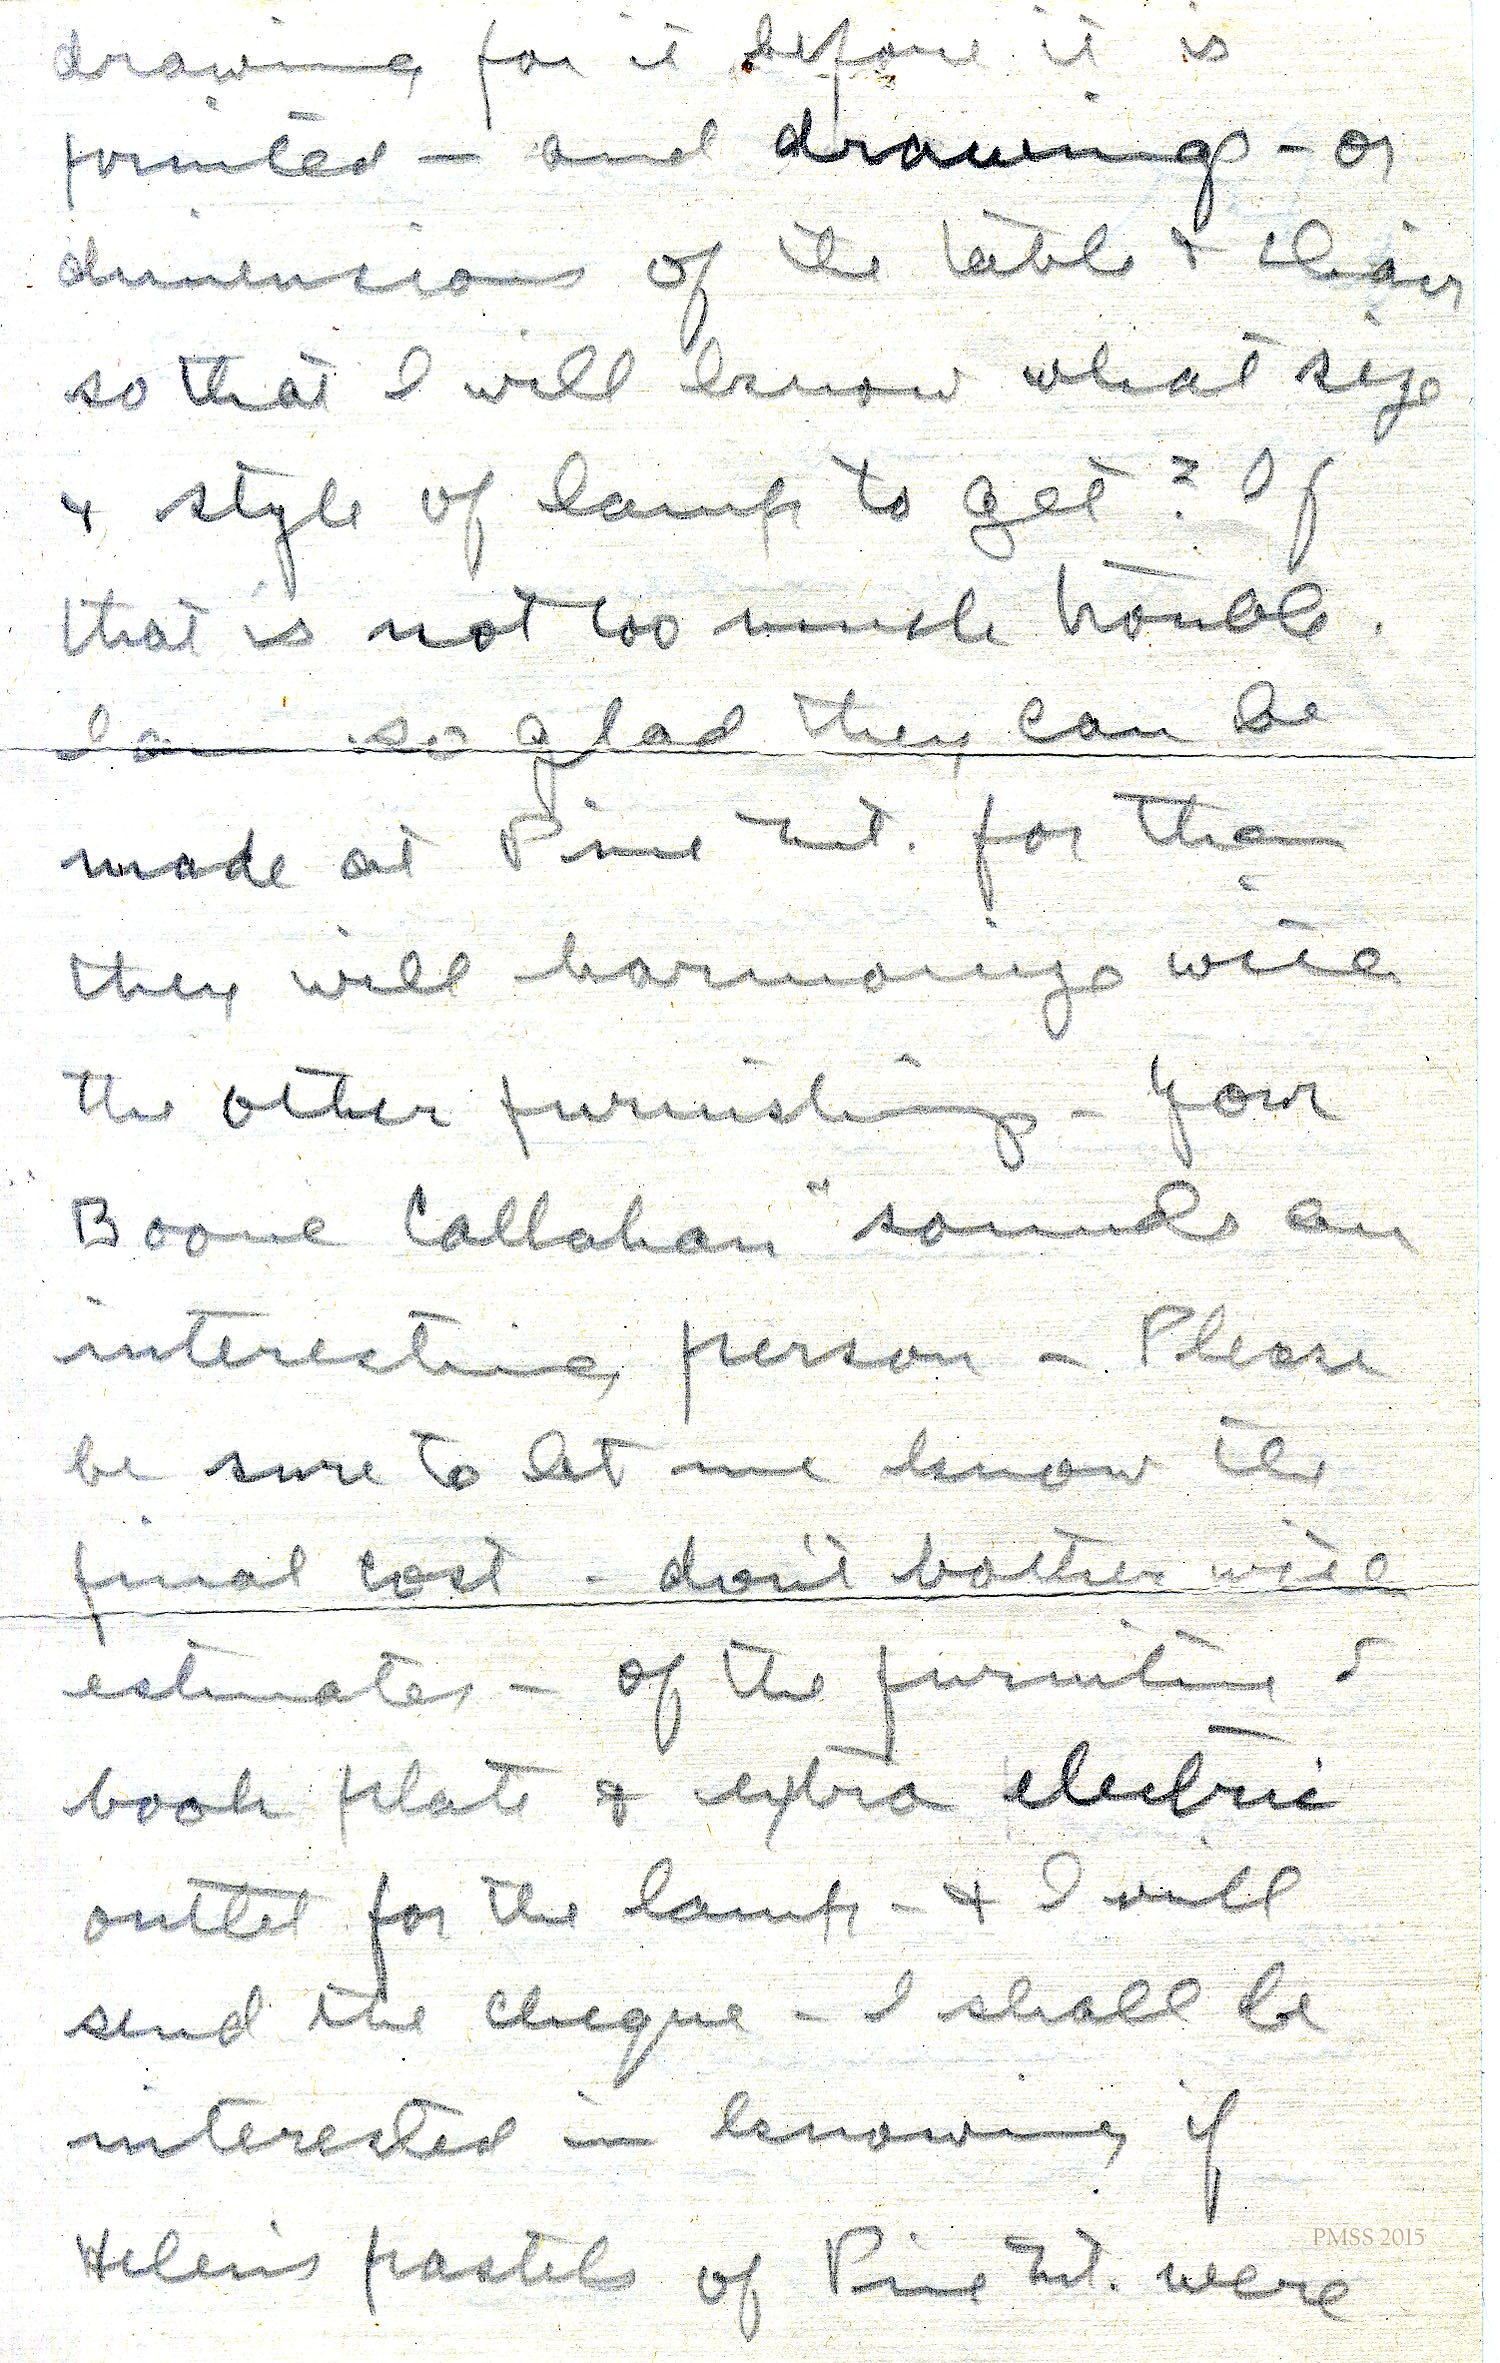 drawing for it before it is
printed — and drawings - or
dimensions of the table & chair
so that I will know what size
& style of lamp to get? If
that is not too much trouble.
I am so glad they can be
made at Pine Mt. for then
they will harmonize with
the other furnishings - Your
Boone Callahan" sounds an
interesting person - Please
be sure to let me know the
final cost - don't bother with
estimates - of the furniture &
book plate & extra electric
outlet for the lamp - & I will
send the cheque - I shall be
interested in knowing if
Helen's pastels of Pine Mt. were
PMSS 2015